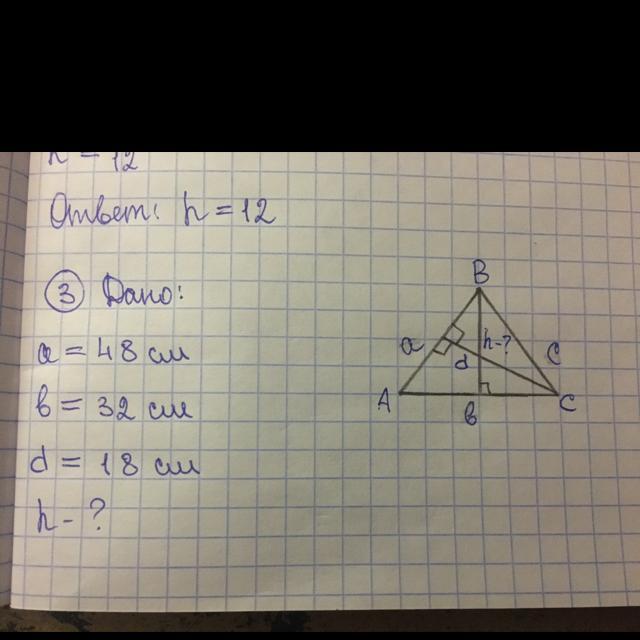 h = 12
Ответ: h = 12
③ Дано:
a = 48 см
b = 32 см
d = 18 см
h - ?
B
a
h-?
c
d
A
b
C